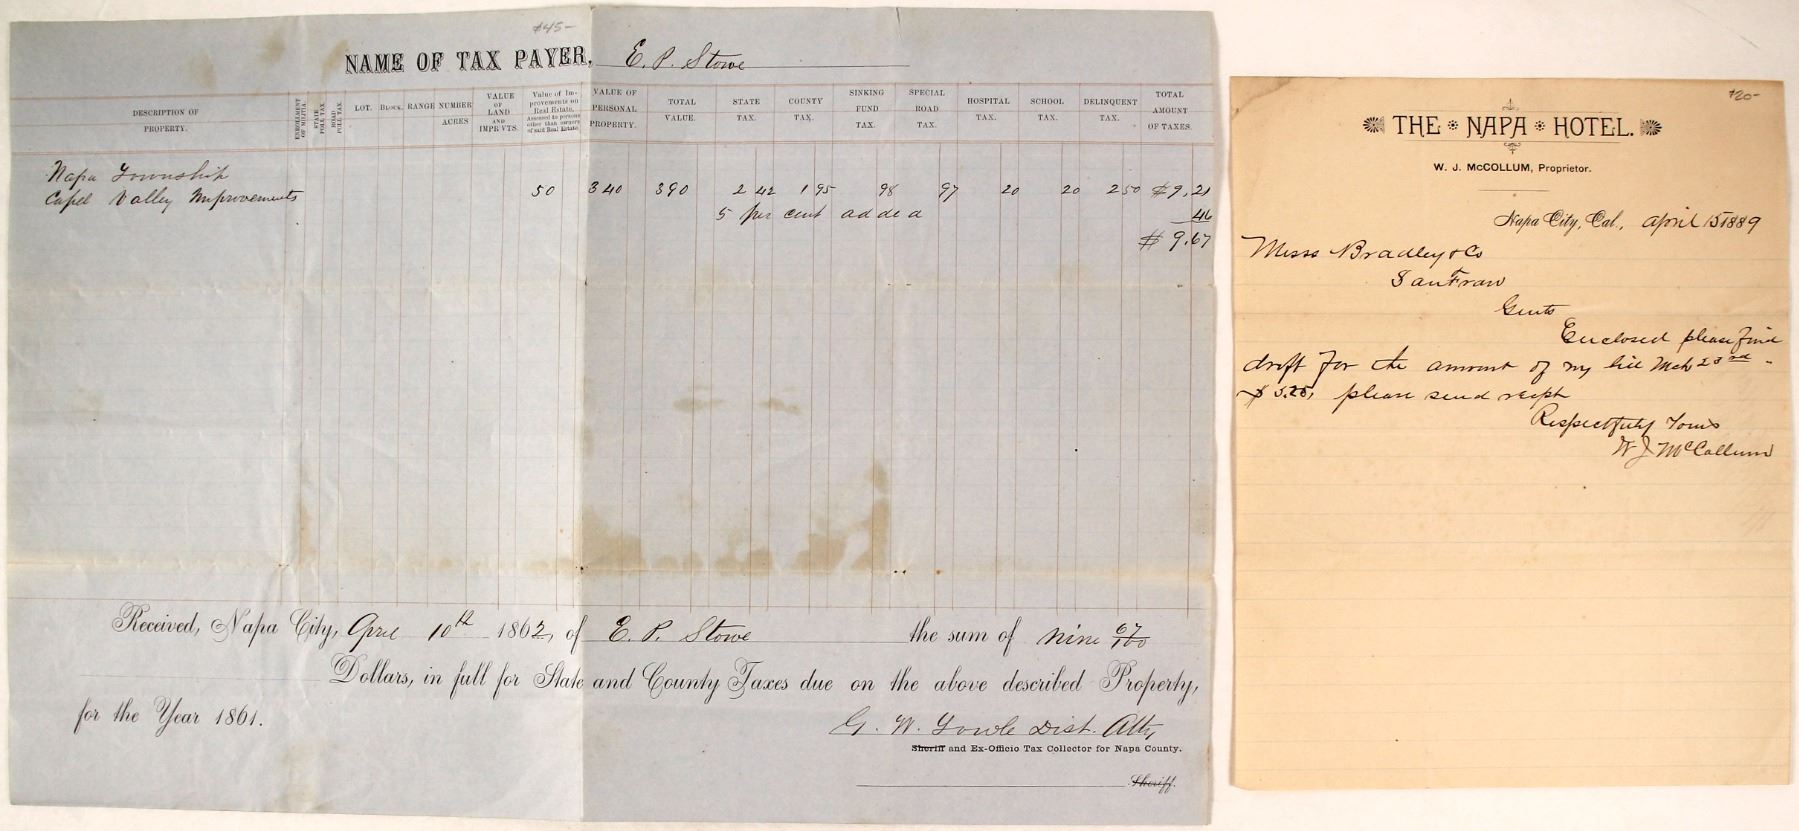 $45-
NAME OF TAX PAYER, E. P. Stowe
DESCRIPTION OF PROPERTY.
ENROLLMENT OF MILITIA.
STATE POLL TAX
ROAD POLL TAX
LOT.
BLOCK.
RANGE
NUMBER ACRES
VALUE OF LAND AND IMPR'VTS.
Value of Improvements on Real Estate, Assessed to persons other than owners of said Real Estate
VALUE OF PERSONAL PROPERTY.
TOTAL VALUE.
STATE TAX.
COUNTY TAX.
SINKING FUND TAX.
SPECIAL ROAD TAX.
HOSPITAL TAX.
SCHOOL TAX.
DELINQUENT TAX.
TOTAL AMOUNT OF TAXES.
Napa Township
Capel Valley Improvements 50 340 390 2 42 1 95 98 97 20 20 2 50 $9,21
5 per cent added 46
$ 9.67
Received, Napa City, April 10th 1862, of E. P. Stowe the sum of nine 67/100
Dollars, in full for State and County Taxes due on the above described Property,
for the Year 1861.
G. W. Towle Dist. Atty
Sheriff and Ex-Officio Tax Collector for Napa County.
Sheriff.
$20-
THE NAPA HOTEL.
W. J. McCOLLUM, Proprietor.
Napa City, Cal., April 15 1889
Messs Bradley & Co
San Fran
Gents
Enclosed please find
draft for the amount of my bill Mch 23rd -
$5.25, please send recipt
Respectfully Yours
W J McCollum